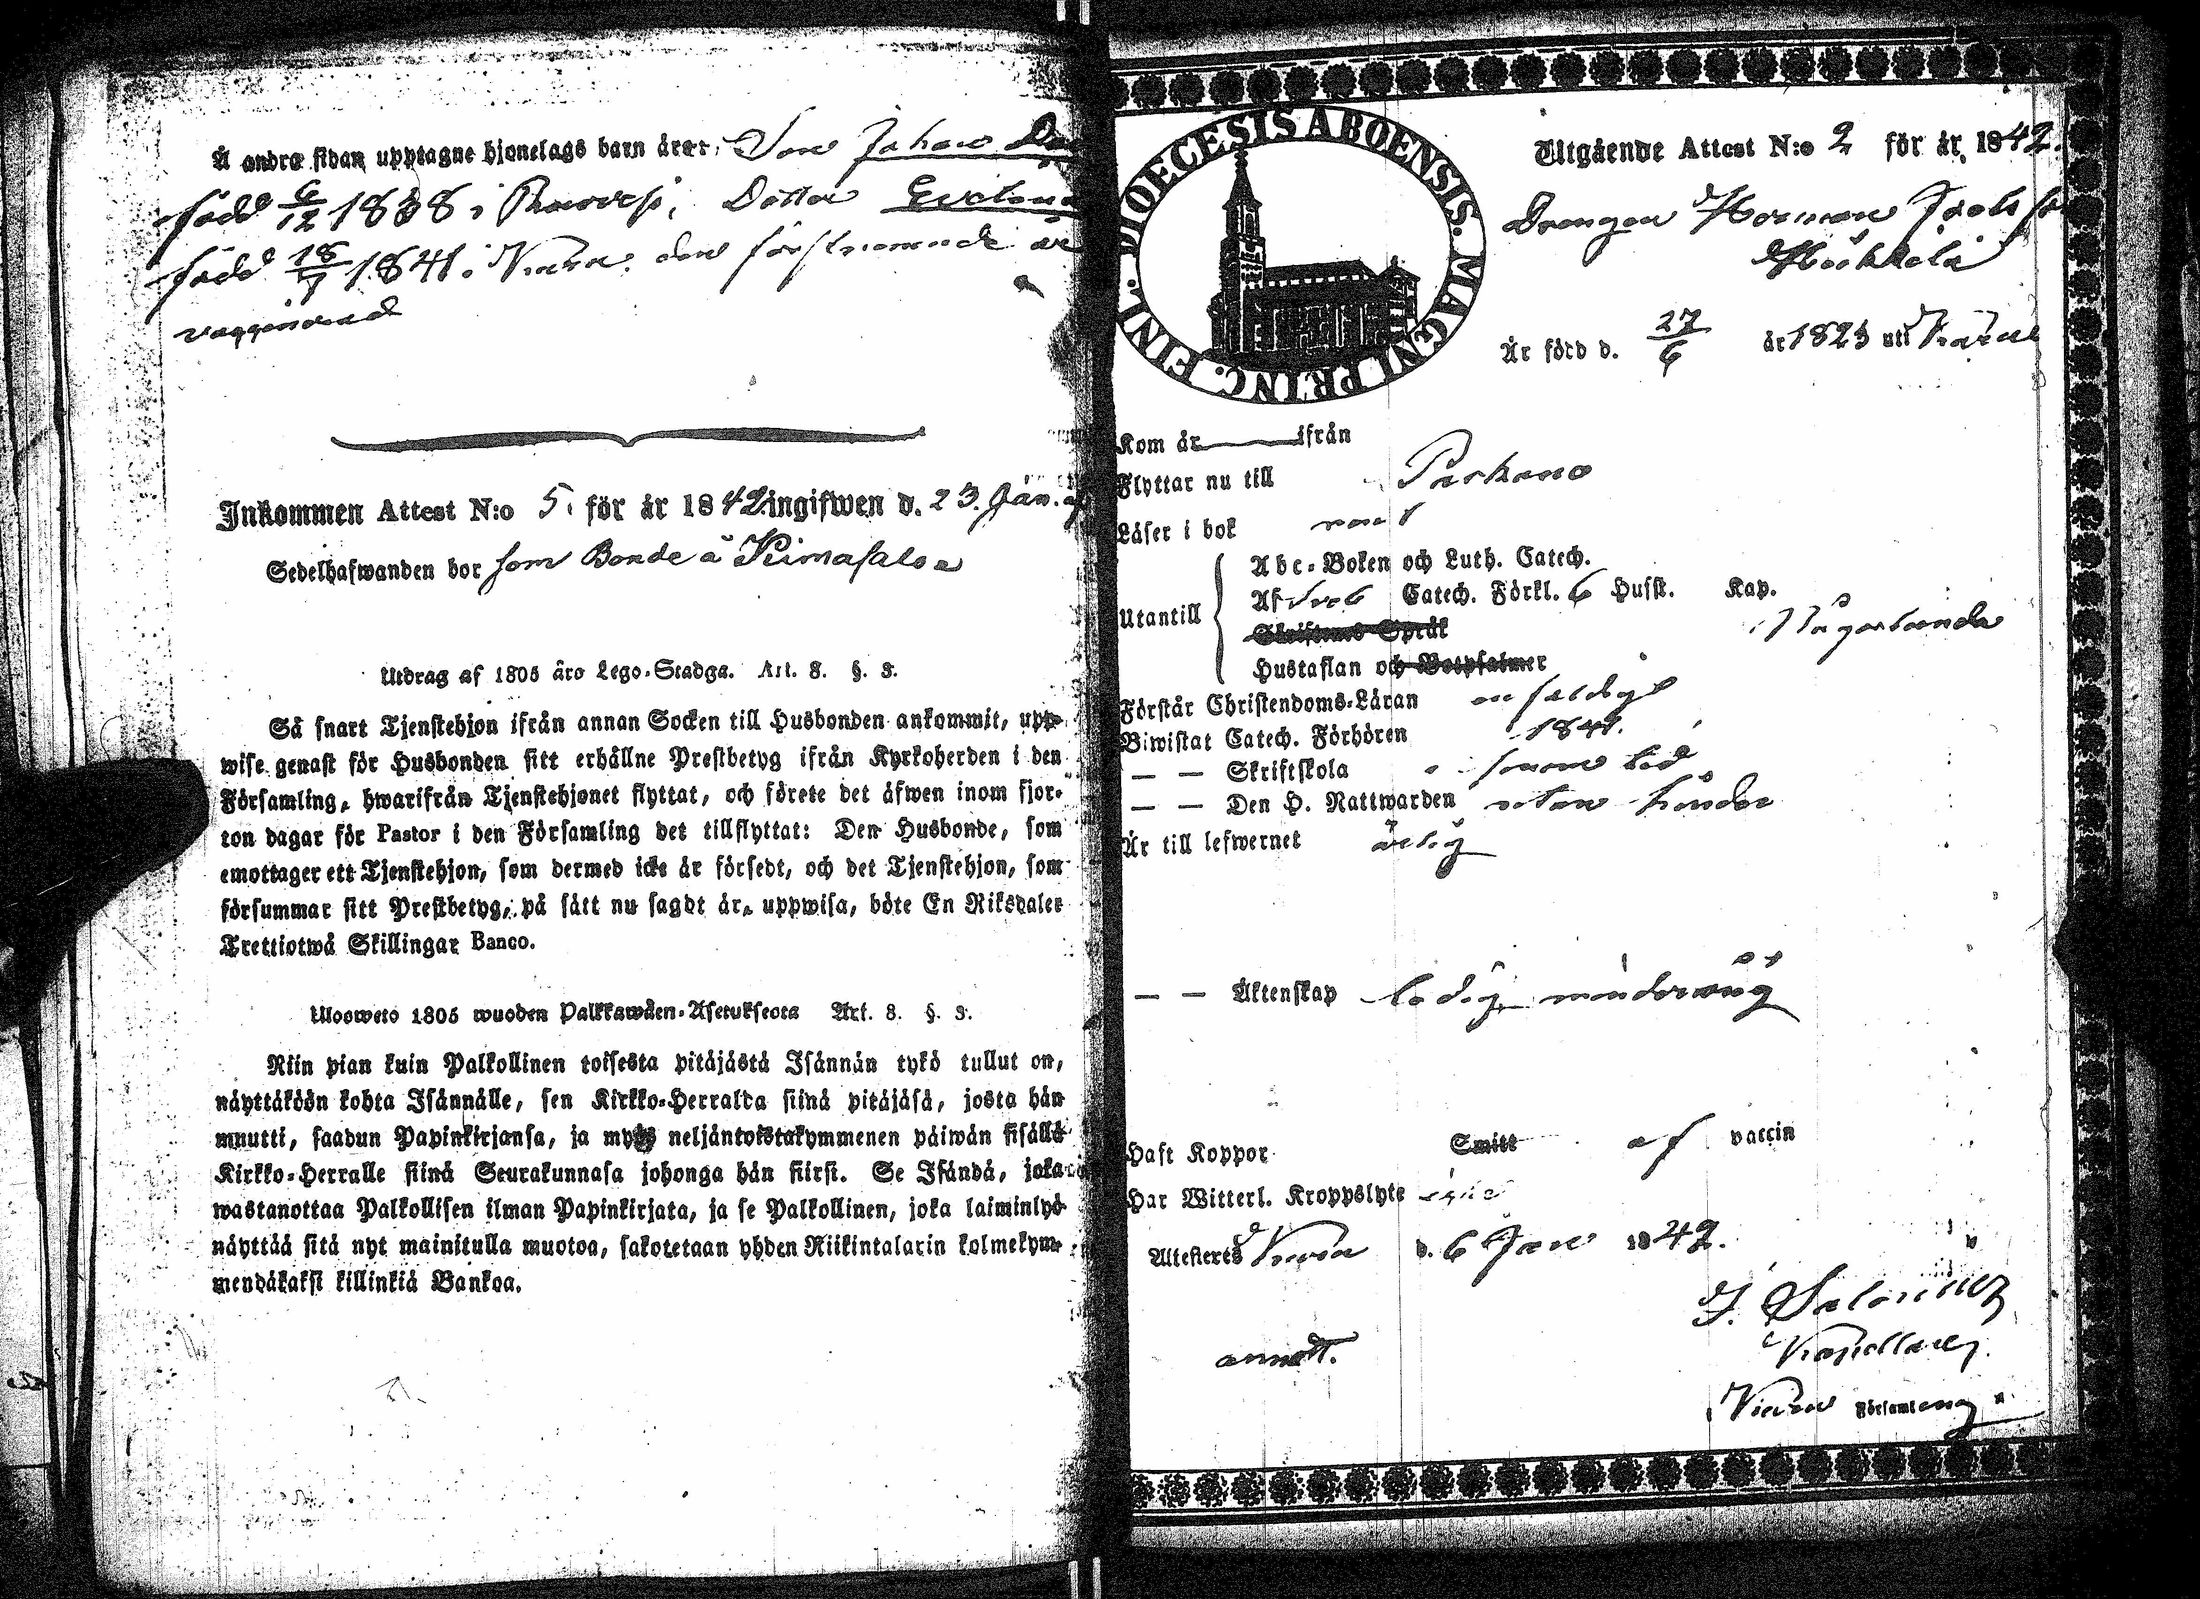 Å andra sidan upptagne hjonelags barn äro: Son Johan
född 6/12 1838 i Ruovesi, Dotter Evelina
född 18/7 1841 i Kuru. den förstnämnde är
vaccinerad
Inkommen Attest N:o 5. för år 1842 ingifwen d. 23. Jan.
Sedelhafwanden bor som Bonde å
Utdrag af 1805 års Lego-Stadga. Art. 8. §. 3.
Så snart Tjenstehjon ifrån annan Socken till Husbonden ankommit, upp-
wise genast för Husbonden sitt erhållne Prestbetyg ifrån Kyrkoherden i den
Församling, hwarifrån Tjenstehjonet flyttat, och förete det äfwen inom fjor-
ton dagar för Pastor i den Församling det tillflyttat: Den Husbonde, som
emottager ett Tjenstehjon, som dermed icke är försedt, och det Tjenstehjon, som
försummar sitt Prestbetyg, på sätt nu sagdt är, uppwisa, böte En Riksdaler
Trettiotwå Skillingar Banco.
Ulosweto 1805 wuoden Palkkawäen-Asetuksesta Art. 8. §. 3.
Niin pian kuin Palkollinen toisesta pitäjästä Isännän tykö tullut on,
näyttäköön kohta Isännälle, sen Kirkko-Herralta siinä pitäjäsä, josta hän
muutti, saadun Papinkirjansa, ja myös neljäntoistakymmenen päiwän sisällä
Kirkko-Herralle siinä Seurakunnasa johonga hän siirsi. Se Isändä, joka
wastanottaa Palkollisen ilman Papinkirjata, ja se Palkollinen, joka laiminlyö
näyttää sitä nyt mainitulla muotoa, sakotetaan yhden Riikintalarin kolmekym-
mendäkaksi killinkiä Bankoa.
DIOECESIS ABOENSIS. MAGNI PRINC. FINL.
Utgående Attest N:o 2 för år 1842.
Drengen Herman Jacobsson
Är född d. 27/6 år 1823 uti Kuru
Kom år ifrån
Flyttar nu till Parkano
Läser i bok
Utantill
Abc-Boken och Luth. Catech.
Af Sveb Catech. Förkl. 6 Husst. Kap.
Skriftens Språk
Någorlunda
Hustaflan och Botpsalmer
Förstår Christendoms-Läran enfaldigt
Biwistat Catech. Förhören 1841.
— — Skriftskola samma tid
— — Den H. Nattwarden utan hinder
Är till lefwernet ärlig
— — Äktenskap ledig, minderårig
Haft Koppor Smitt af vaccin
Har Witterl. Kroppslyte
Attesterets Kuru d. 6 Jan 1842.
J. Salonius
Kapellan
Församling